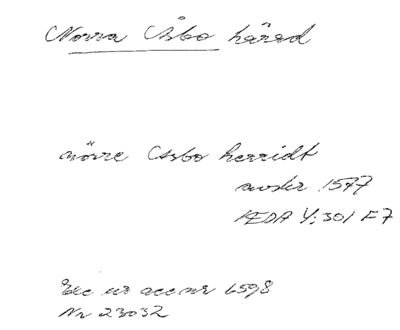 Norra Åsbo härad
nörre Asbo herridt
1577
REDA Y:301 F7
Exc ur acc nr 6598
Nr 23032